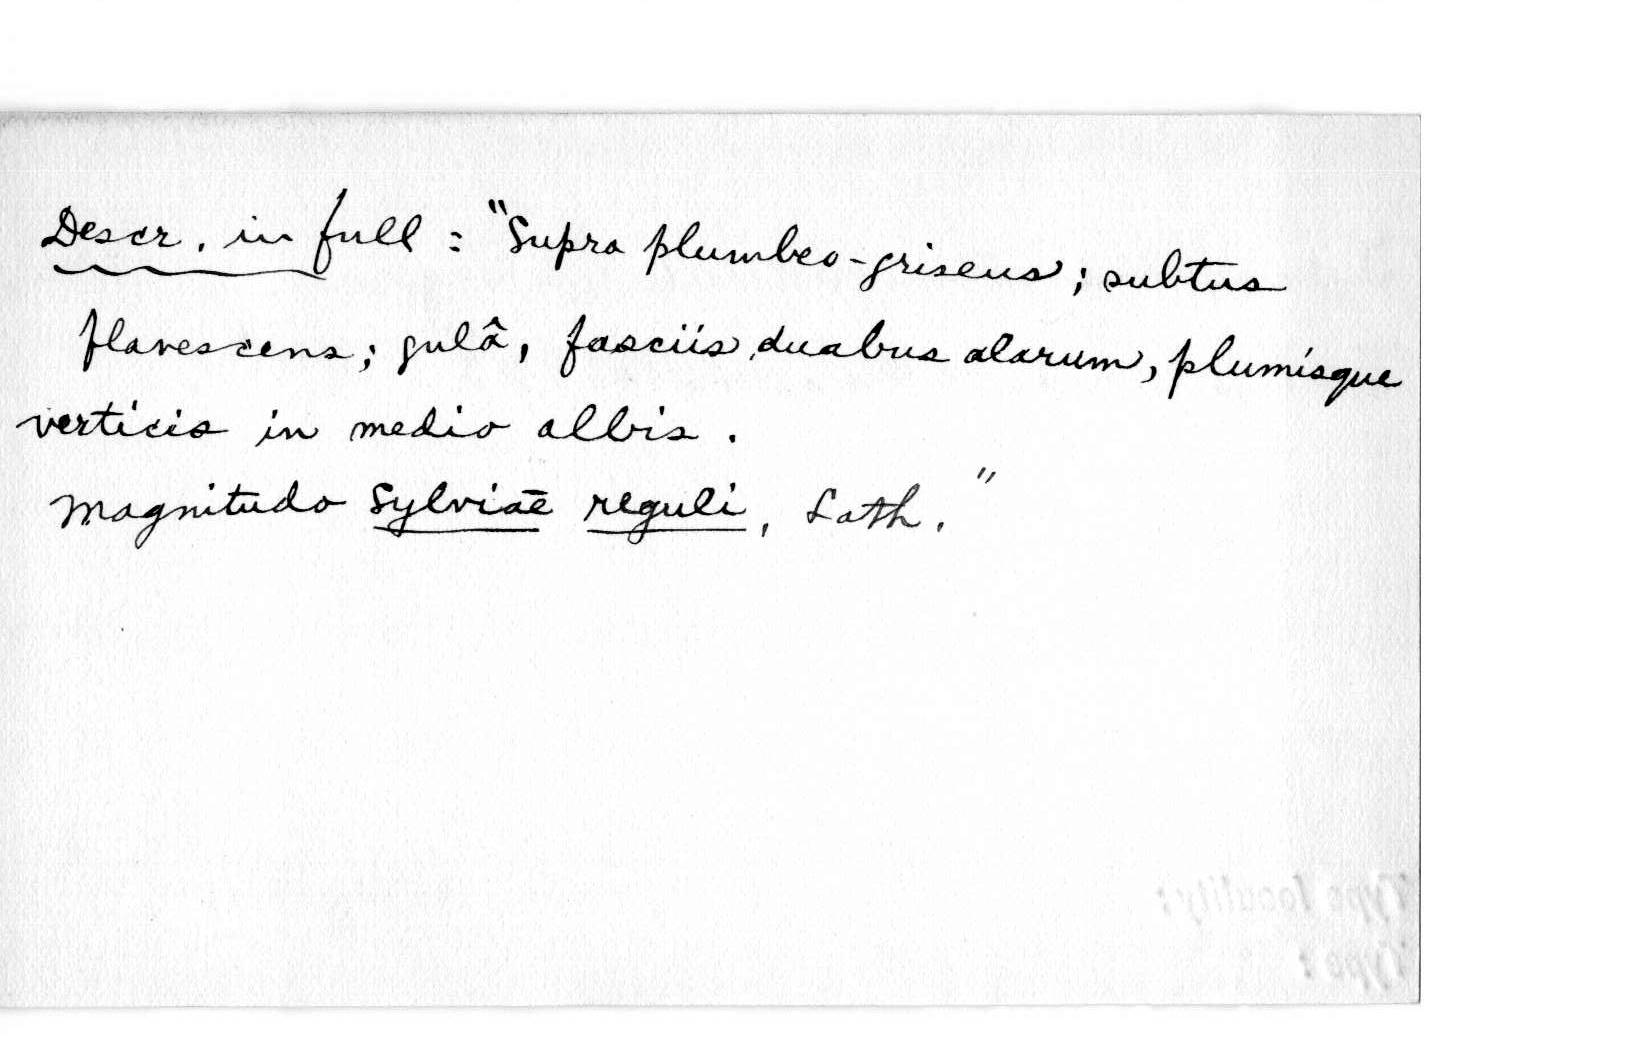 Descr. in full : "Supra plumbeo-griseus; subtus
flavescens; gulâ, fasciis duabus alarum, plumisque
verticis in medio albis.
Magnitudo Sylviae reguli, Lath."
Type locality:
Type: